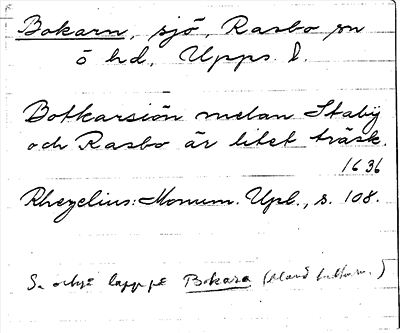 Bokarn, sjö, Rasbo sn
ö hd, Upps. l.
Botkarsiön melan Staby
och Rasbo är litet träsk.
1636
Rhezelius: Monum. Upl., s. 108.
Se också lapp på Bokara (bland